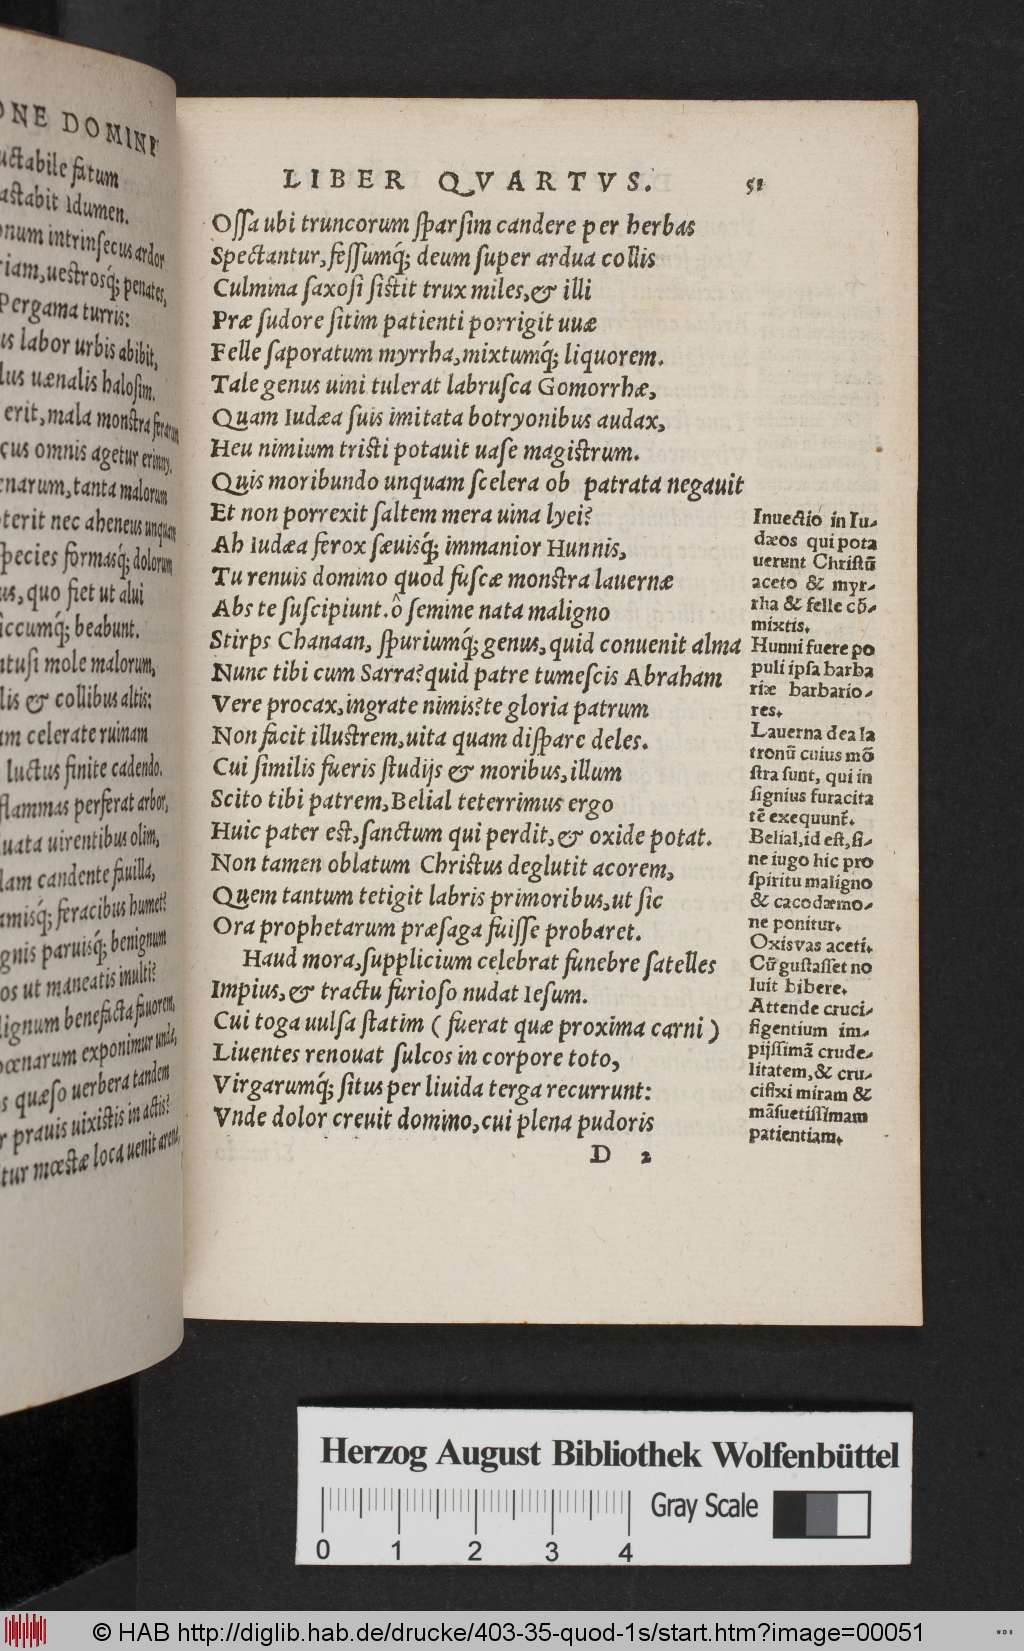 ONE DOMINI
uctabile fatum
astabit Idumen.
onum intrinsecus ardor
riam, uestrosq́; penates,
Pergama turris:
us labor urbis abibit,
lus uænalis halosim.
erit, mala monstra ferarum
cus omnis agetur erinnys.
enarum, tanta malorum
oterit nec aheneus unquam
species formasq́; dolorum
us, quo fiet ut alui
iccumq́; beabunt.
ntusi mole malorum,
lis & collibus altis:
am celerate ruinam
luctus finite cadendo.
flammas perferat arbor,
uata uirentibus olim,
lam candente fauilla,
amisq́; feracibus humet?
gnis paruisq́; benignum
os ut maneatis inulti?
lignum benefacta fauorem,
pœnarum exponimur unda,
s quæso uerbera tandem
r prauis uixistis in actis?
tur mœstæ loca uenit arenæ,
LIBER QVARTVS. 51
Ossa ubi truncorum sparsim candere per herbas
Spectantur, fessumq́; deum super ardua collis
Culmina saxosi sistit trux miles, & illi
Præ sudore sitim patienti porrigit uuæ
Felle saporatum myrrha, mixtumq́; liquorem.
Tale genus uini tulerat labrusca Gomorrhæ,
Quam Iudæa suis imitata botryonibus audax,
Heu nimium tristi potauit uase magistrum.
Quis moribundo unquam scelera ob patrata negauit
Et non porrexit saltem mera uina lyei?
Ah Iudæa ferox sæuisq́; immanior Hunnis,
Tu renuis domino quod fuscæ monstra lauernæ
Abs te suscipiunt. ô semine nata maligno
Stirps Chanaan, spuriumq́; genus, quid conuenit alma
Nunc tibi cum Sarra? quid patre tumescis Abraham
Vere procax, ingrate nimis? te gloria patrum
Non facit illustrem, uita quam dispare deles.
Cui similis fueris studijs & moribus, illum
Scito tibi patrem, Belial teterrimus ergo
Huic pater est, sanctum qui perdit, & oxide potat.
Non tamen oblatum Christus deglutit acorem,
Quem tantum tetigit labris primoribus, ut sic
Ora prophetarum præsaga fuisse probaret.
Haud mora, supplicium celebrat funebre satelles
Impius, & tractu furioso nudat Iesum.
Cui toga uulsa statim ( fuerat quæ proxima carni )
Liuentes renouat sulcos in corpore toto,
Virgarumq́; situs per liuida terga recurrunt:
Vnde dolor creuit domino, cui plena pudoris
D 2
Inuectiō in Iu-
dæos qui pota
uerunt Christū
aceto & myr-
rha & felle cō-
mixtis.
Hunni fuere po
puli ipsa barba
riæ barbario-
res.
Lauerna dea la
tronū cuius mō
stra sunt, qui in
signius furacita
tē exequunt̄.
Belial, id est, si-
ne iugo hic pro
spiritu maligno
& cacodæmo-
ne ponitur.
Oxis vas aceti.
Cū gustasset no
luit bibere.
Attende cruci-
figentium im-
pijssimā crude-
litatem, & cru-
cifixi miram &
māsuetissimam
patientiam.
Herzog August Bibliothek Wolfenbüttel
Gray Scale
0 1 2 3 4
© HAB http://diglib.hab.de/drucke/403-35-quod-1s/start.htm?image=00051